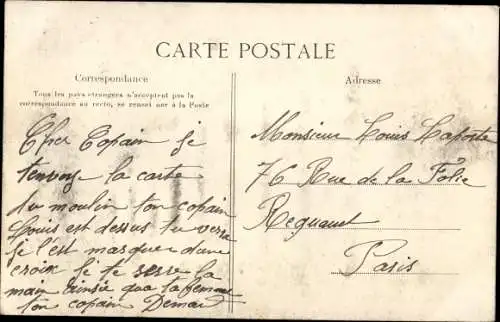 CARTE POSTALE
Correspondance
Tous les pays étrangers n'acceptent pas la
correspondance au recto, se renseigner à la Poste
Cher Copain je
t'envoye la carte
du moulin ton copain
Louis est dessus tu verra
je l'est marquer d'une
croix je te serre la
main ainsie que ta femme
ton copain
Adresse
Monsieur Louis Laporte
76 Rue de la Folie
Regnault
Paris